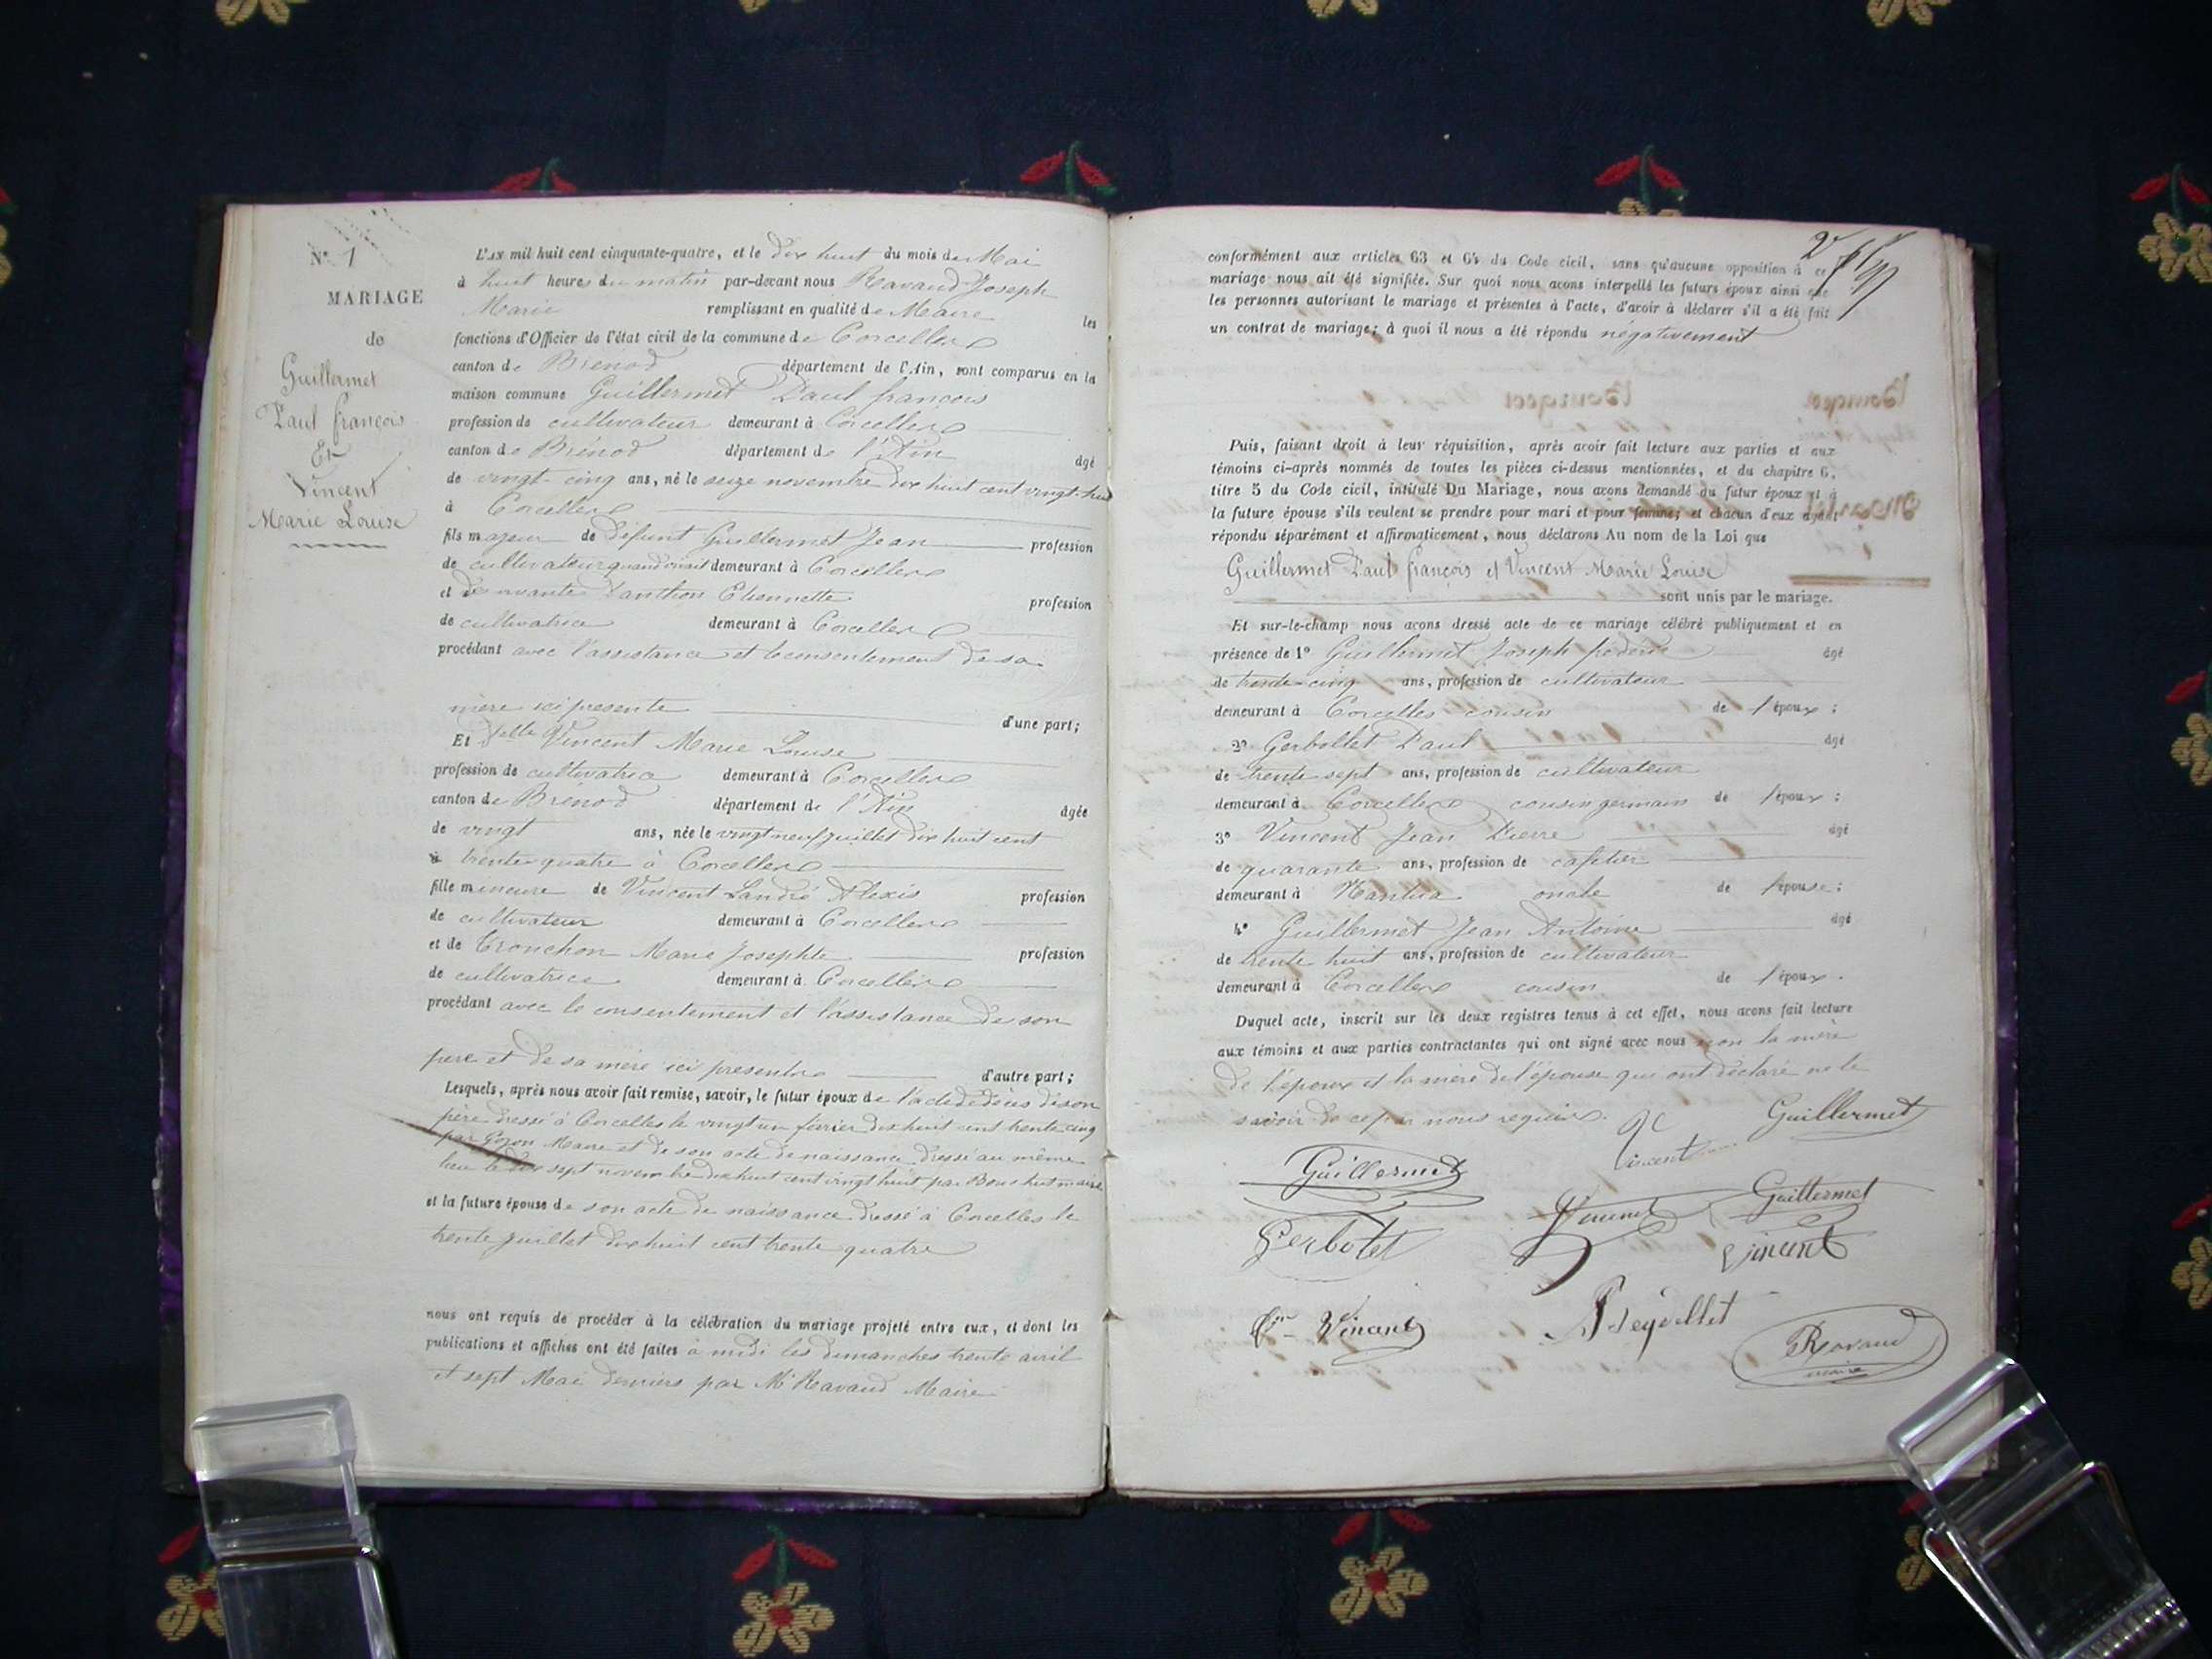 N° 1
MARIAGE
de
Guillermet
Paul françois
Et
Vincent
Marie Louise
L'an mil huit cent cinquante-quatre, et le dix huit du mois de Mai
à huit heures du matin par-devant nous Ravaud Joseph
Marie remplissant en qualité de Maire les
fonctions d'Officier de l'état civil de la commune de Corcelles
canton de Brénod département de l'Ain, sont comparus en la
maison commune Guillermet Paul françois
profession de cultivateur demeurant à Corcelles
canton de Brénod département de l'Ain âgé
de vingt-cinq ans, né le seize novembre dix huit cent vingt-huit
à Corcelles
fils majeur de défunt Guillermet Jean profession
de cultivateur quand vivait demeurant à Corcelles
et de vivante Panthon Etiennette profession
de cultivatrice demeurant à Corcelles
procédant avec l'assistance et le consentement de sa
mère ici presente d'une part;
Et Delle Vincent Marie Louise
profession de cultivatrice demeurant à Corcelles
canton de Brénod département de l'Ain âgée
de vingt ans, née le vingt neuf juillet dix huit cent
à trente quatre à Corcelles
fille mineure de Vincent Landré Alexis profession
de cultivateur demeurant à Corcelles
et de Tronchon Marie Josephte profession
de cultivatrice demeurant à Corcelles
procédant avec le consentement et l'assistance de son
pere et de sa mère ici presents d'autre part;
Lesquels, après nous avoir fait remise, savoir, le futur époux de l'acte de décès de son
père dressé à Corcelles le vingt un février dix huit cent trente cinq
par Gozon Maire et de son acte de naissance dressé au même
lieu le dix sept novembre dix huit cent vingt huit par maire
et la future épouse de son acte de naissance dressé à Corcelles le
trente juillet dix huit cent trente quatre
nous ont requis de procéder à la célébration du mariage projeté entre eux, et dont les
publications et affiches ont été faites à midi les dimanches trente avril
et sept Mai derniers par Mr Ravaud Maire
2
conformément aux articles 63 et 64 du Code civil, sans qu'aucune opposition à ce
mariage nous ait été signifiée. Sur quoi nous avons interpellé les futurs époux ainsi que
les personnes autorisant le mariage et présentes à l'acte, d'avoir à déclarer s'il a été fait
un contrat de mariage; à quoi il nous a été répondu négativement
Puis, faisant droit à leur réquisition, après avoir fait lecture aux parties et aux
témoins ci-après nommés de toutes les pièces ci-dessus mentionnées, et du chapitre 6,
titre 5 du Code civil, intitulé Du Mariage, nous avons demandé au futur époux et à
la future épouse s'ils veulent se prendre pour mari et pour femme; et chacun d'eux ayant
répondu séparément et affirmativement, nous déclarons Au nom de la Loi que
Guillermet Paul françois et Vincent Marie Louise
sont unis par le mariage.
Et sur-le-champ nous avons dressé acte de ce mariage célébré publiquement et en
présence de 1° Guillermet Joseph âgé
de trente-cinq ans, profession de cultivateur
demeurant à Corcelles cousin de l'époux;
2° Gerbollet Paul âgé
de trente sept ans, profession de cultivateur
demeurant à Corcelles cousin germain de l'époux;
3° Vincent Jean Pierre âgé
de quarante ans, profession de cafetier
demeurant à Nantua oncle de l'épouse;
4° Guillermet Jean Antoine âgé
de trente huit ans, profession de cultivateur
demeurant à Corcelles cousin de l'époux.
Duquel acte, inscrit sur les deux registres tenus à cet effet, nous avons fait lecture
aux témoins et aux parties contractantes qui ont signé avec nous non la mère
de l'époux et la mère de l'épouse qui ont déclaré ne le
savoir de ce par nous requises.
Guillermet
Vincent
Guillermet
Vincent
Guillermet
Gerbotet
Vincent
Vincent
Ravaud
maire